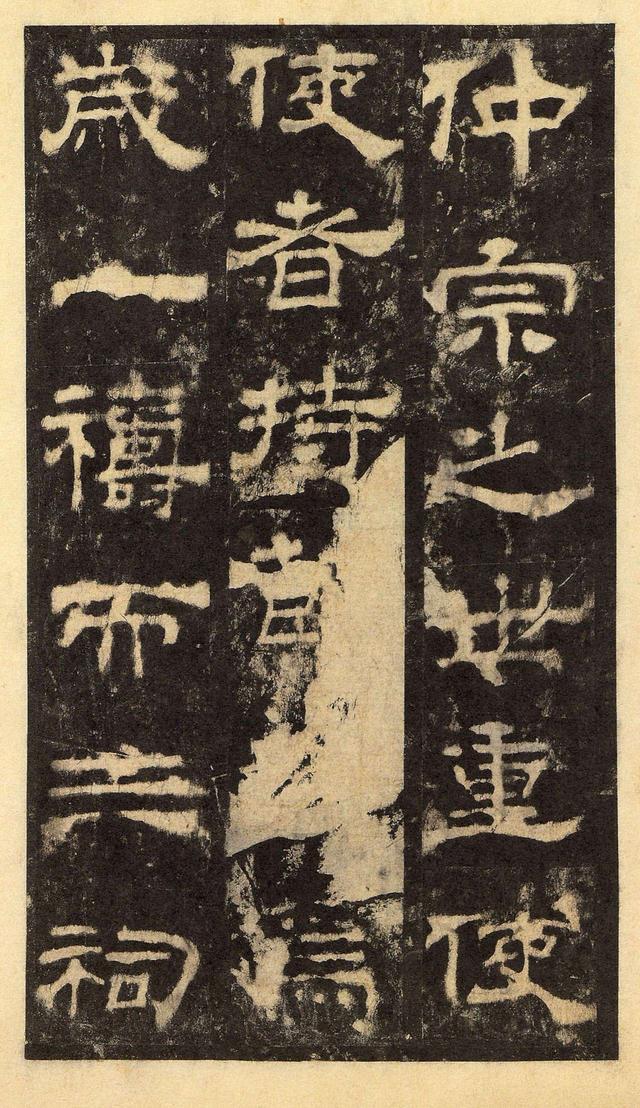 仲宗之世重使
使者持節焉
歲一禱而三祠